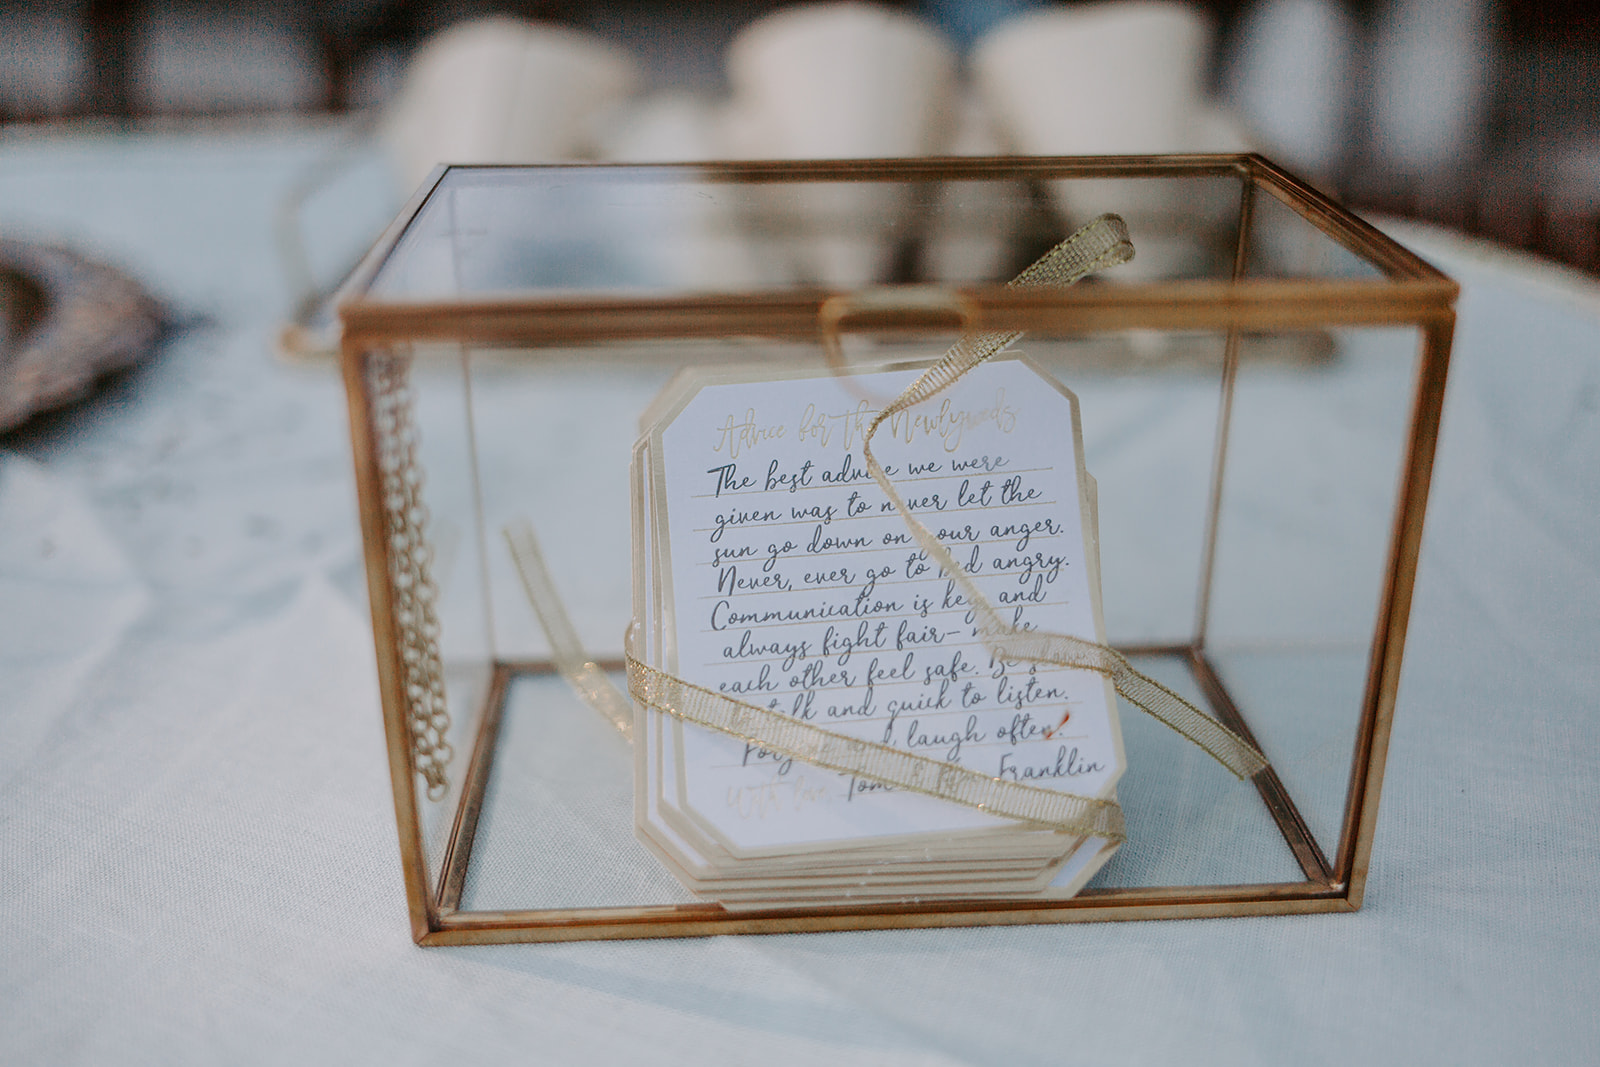 Advice for the Newlyweds
The best advice we were
given was to never let the
sun go down on your anger.
Never, ever go to bed angry.
Communication is key and
always fight fair- make
each other feel safe. Be slow
to talk and quick to listen.
Forgive and laugh often!
With love, Tom & Franklin